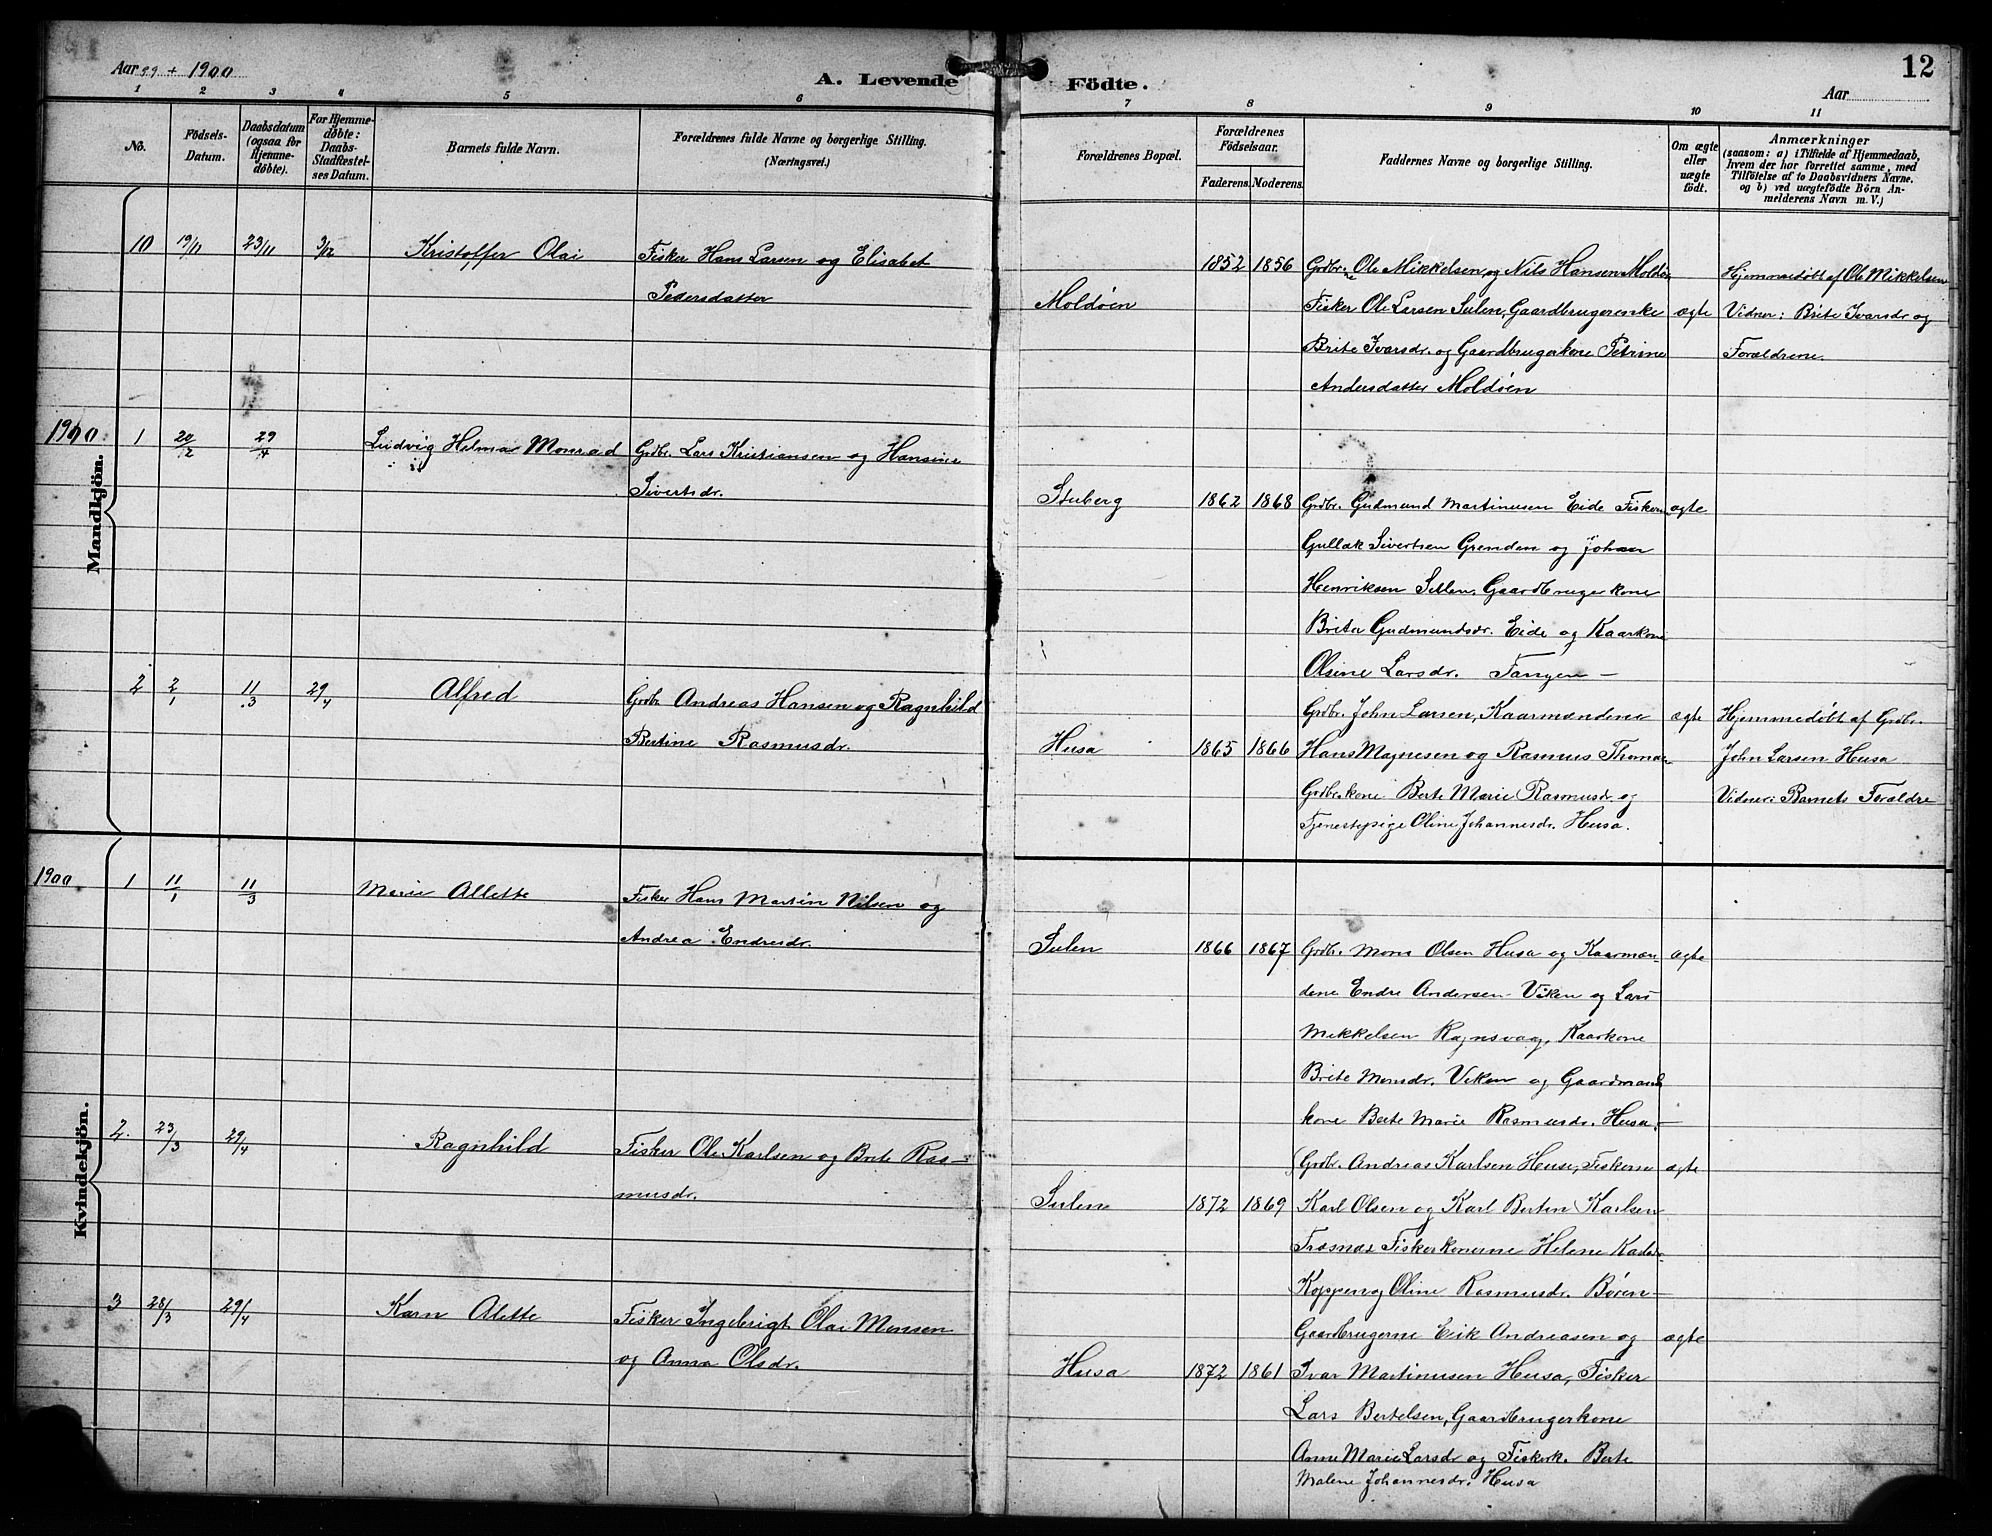 Aar 99 + 1900
A. Levende Födte.
12
Aar
1 2 3 4 5 6 7 8 9 10 11
No.
Födsels-Datum.
Daabsdatum (ogsaa for Hjemme-døbte).
For Hjemme-døbte: Daabs-Stadfæstel-ses Datum.
Barnets fulde Navn.
Forældrenes fulde Navne og borgerlige Stilling.
(Næringsvei.)
Forældrenes Bopæl.
Forældrenes Födselsaar.
Faderens. Moderens.
Faddernes Navne og borgerlige Stilling.
Om ægte eller uægte födt.
Anmærkninger
(saasom: a) i Tilfælde af Hjemmedaab,
hvem der har forrettet samme, med
Tilföielse af to Daabsvidners Navne.
og b) ved uægtefödte Börn An-
melderens Navn m. V.)
Mandkjön.
10 19/11 23/11 3/12 Kristoffer Olai
Fisker Hans Larsen og Elisabet
Pedersdatter
Moldöen
1852 1856
Grdbr. Ole Mikkelsen og Nils Hansen Moldöen
Fisker Ole Larsen Sulen, Gaardbrugerenke
Brite Ivarsdr. og Gaardbrugerkone Petrine
Andersdatter Moldöen
ægte
Hjemmedöbt af Ole Mikkelsen
Vidner: Brite Ivarsdr og
Forældrene.
1900
1 20/2 29/4 Ludvig Helmar Monrad
Grdbr. Lars Kristiansen og Hansine
Sivertsdr.
Stuberg
1862 1868
Grdbr. Gudmund Martinusen Eide Fiskerne
Gullak Sivertsen Grenden og Johan
Henriksen Sulen, Gaardbrugerkone
Brita Gudmundsdr. Eide og Kaarkone
Olsine Larsdr. Tangen —
ægte
2 2/1 11/3 29/4 Alfred
Grdbr. Andreas Hansen og Ragnhild
Bertine Rasmusdr.
Husa
1865 1866
Grdbr. John Larsen, Kaarmændene
Hans Magnesen og Rasmus Thomas
Grdbr.kone Berte Marie Rasmusdr og
Tjenestepige Oline Johannesdr. Husa.
ægte
Hjemmedöbt af Grdbr.
John Larsen Husa
Vidner: Barnets Forældre
Kvindekjön.
1900
1 11/1 11/3 Marie Allette
Fisker Hans Martin Nilsen og
Andrea Endresdr.
Sulen
1866 1867
Grdbr. Mons Olsen Husa og Kaarmæn-
dene Endre Andersen Viken og Lars
Mikkelsen Ragnsvaag, Kaarkone
Brite Monsdr. Viken og Gaardmands
kone Berte Marie Rasmusdr. Husa. —
ægte
2. 23/3 29/4 Ragnhild
Fisker Ole Karlsen og Brite Ras-
musdr.
Sulen
1872 1869
Grdbr. Andreas Karlsen Husa, Fiskerne
Karl Olsen og Karl Bertin Karlsen
Fiskerkonerne Helene
og Oline Rasmusdr.
ægte
3 28/3 29/4 Karn Alette
Fisker Ingebrigt Olai Monsen
og Anna Olsdr.
Husa
1872 1861
Gaardbrugerne Erik Andreasen og
Ivar Martinusen Husa, Fisker
Lars Bertelsen, Gaardbrugerkone
Anne Marie Larsdr og Fiskerk. Berte
Malene Johannesdr. Husa
ægte